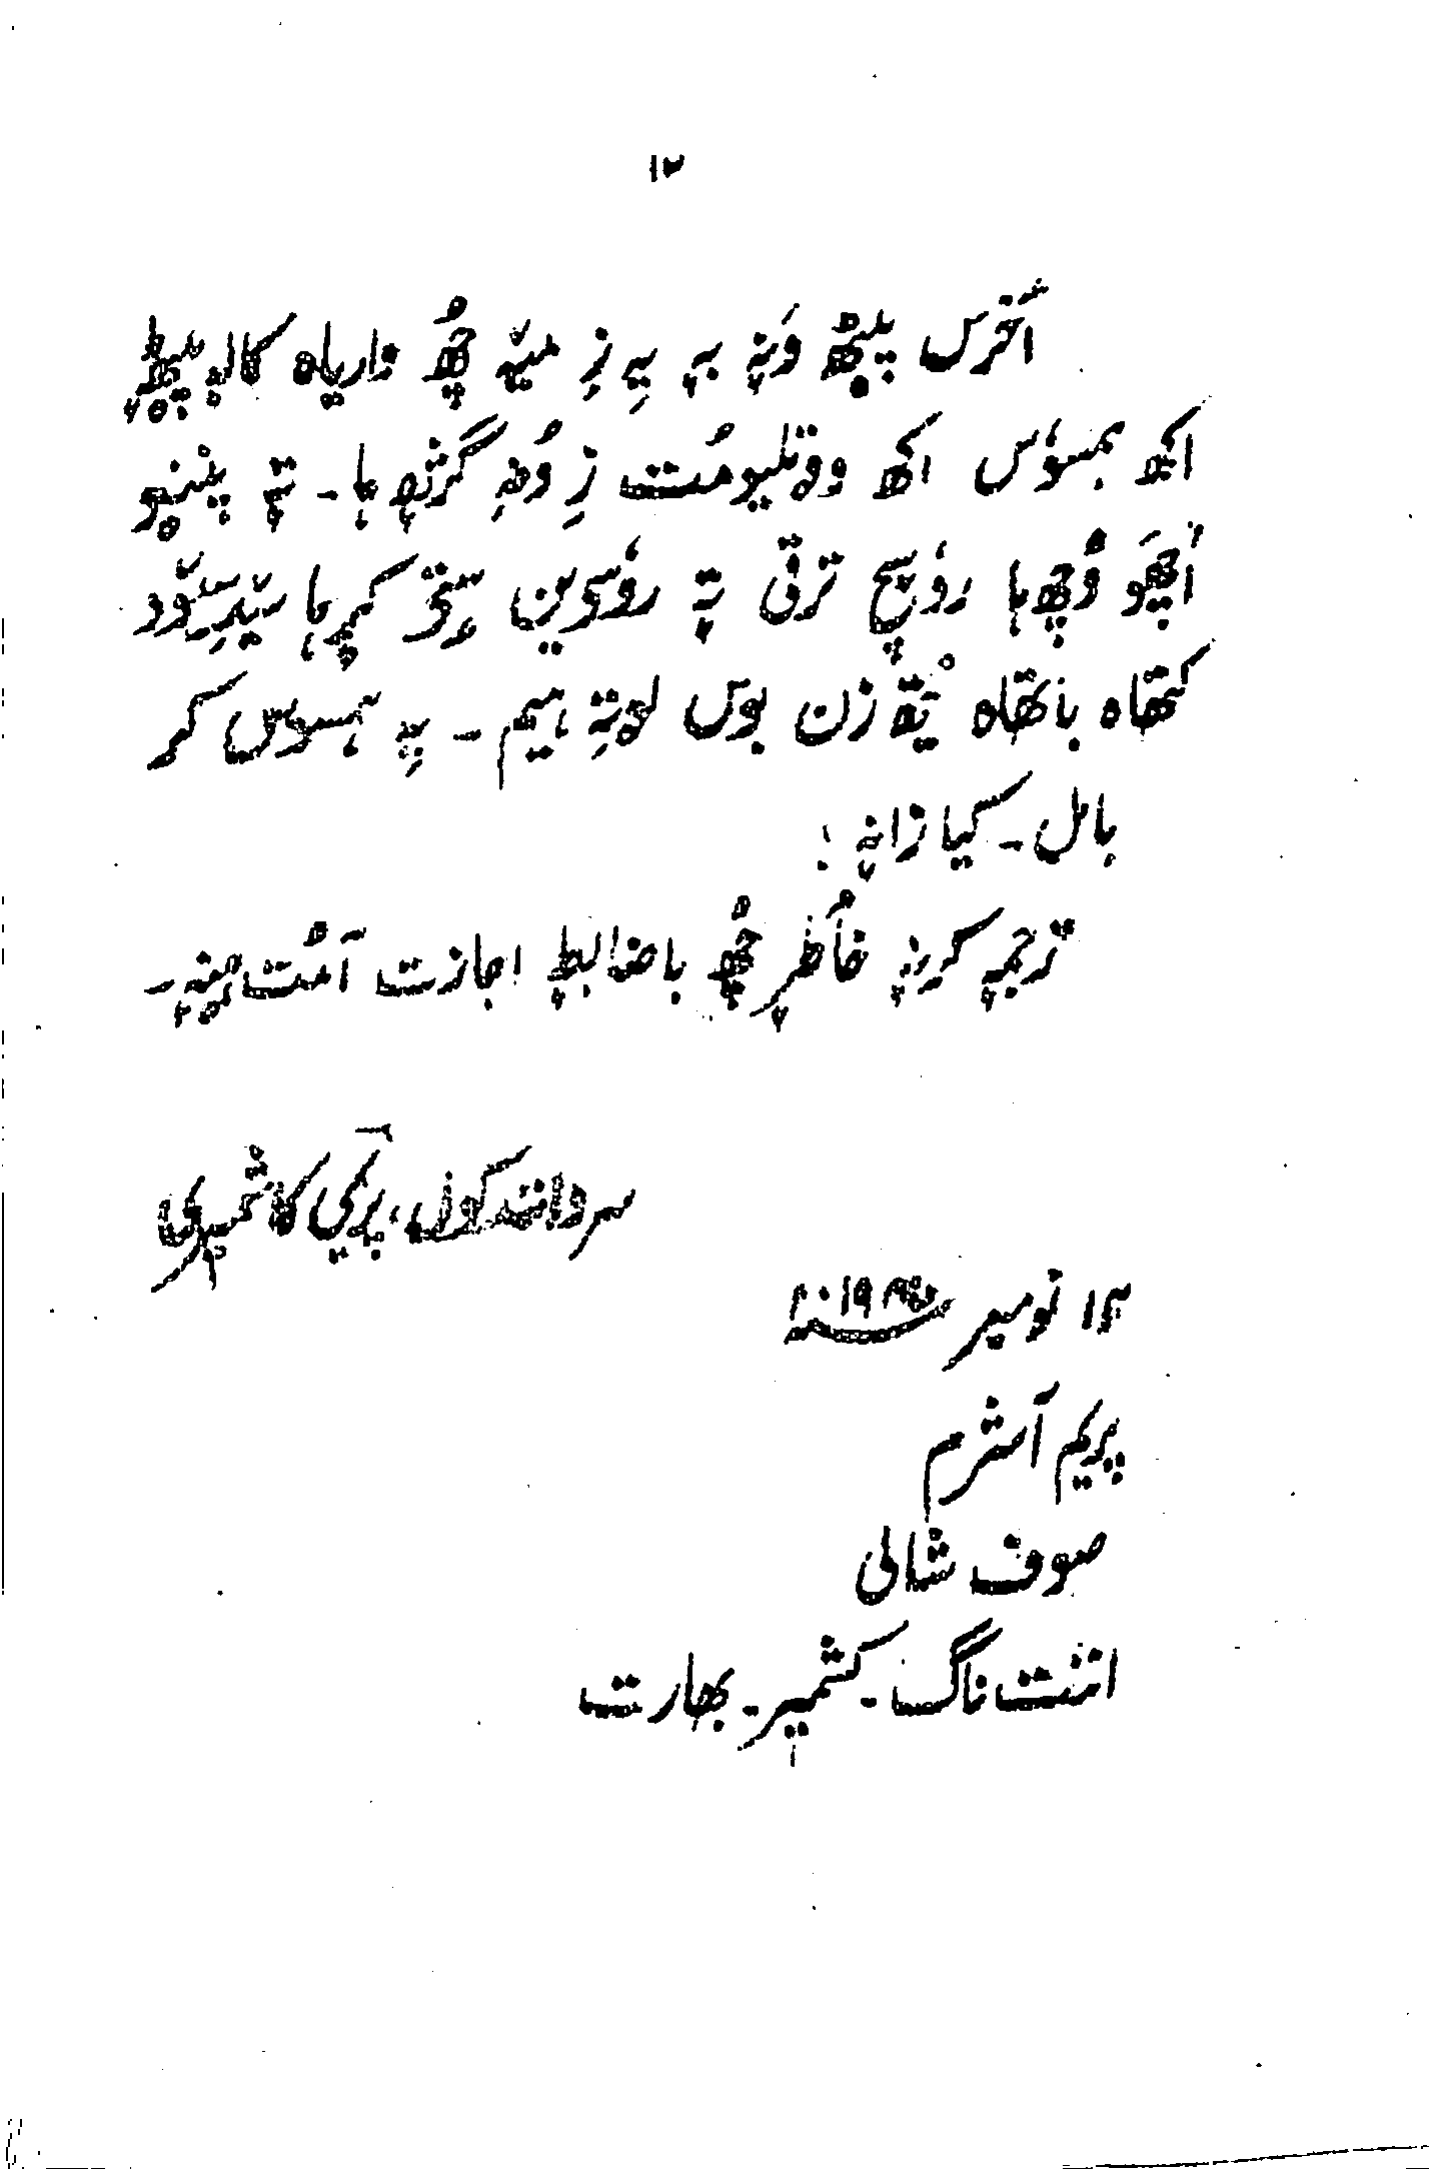 ۱۲
آخرس پیٹھ وَنہٕ بہٕ یہِ زِ میٚہ چُھ واریاہ کالہٕ پیٹھٕ
اکھ ہمسوٗس اکھ ووتلیومُت زِ وُنہِ گژھہٕ ہا۔ تہٕ پننیو
أچھَو وُچھ ہا روٗسچ ترقی تہٕ روٗسۍین ستۍ کرٕ ہا
کتھاہ باتھاہ یُتھ زن بوس لوتہِ ہیم ۔ یہِ ہسوس کر
بامل ۔ کیازانہٕ !
ترجمہٕ کرنہٕ خٲطرٕ چُھ باضابطہٕ اجازت آمُت
سروانند کول، پریمی کاشمیری
۱۳ نومبر
پریم آشرم
صوف شالی
اننت ناگ ۔ کشمیر ۔ بھارت